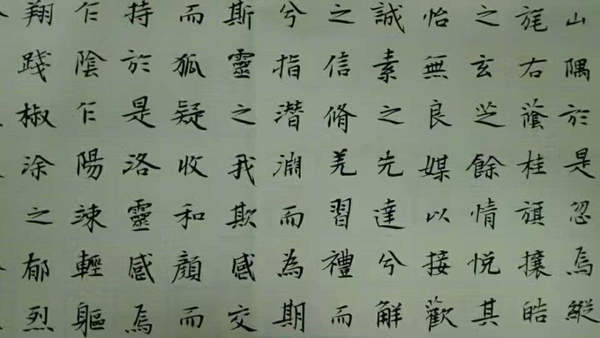 山隅於是忽焉縱
旄右蔭桂旗攘皓
之玄芝餘情悅其
怡無良媒以接歡
誠素之先達兮解
之信脩羌習禮而
兮指潜淵而為期
斯靈之我欺感交
而狐疑收和顏而
持於是洛靈感焉
乍陰乍陽竦輕軀
翔踐椒涂之郁烈